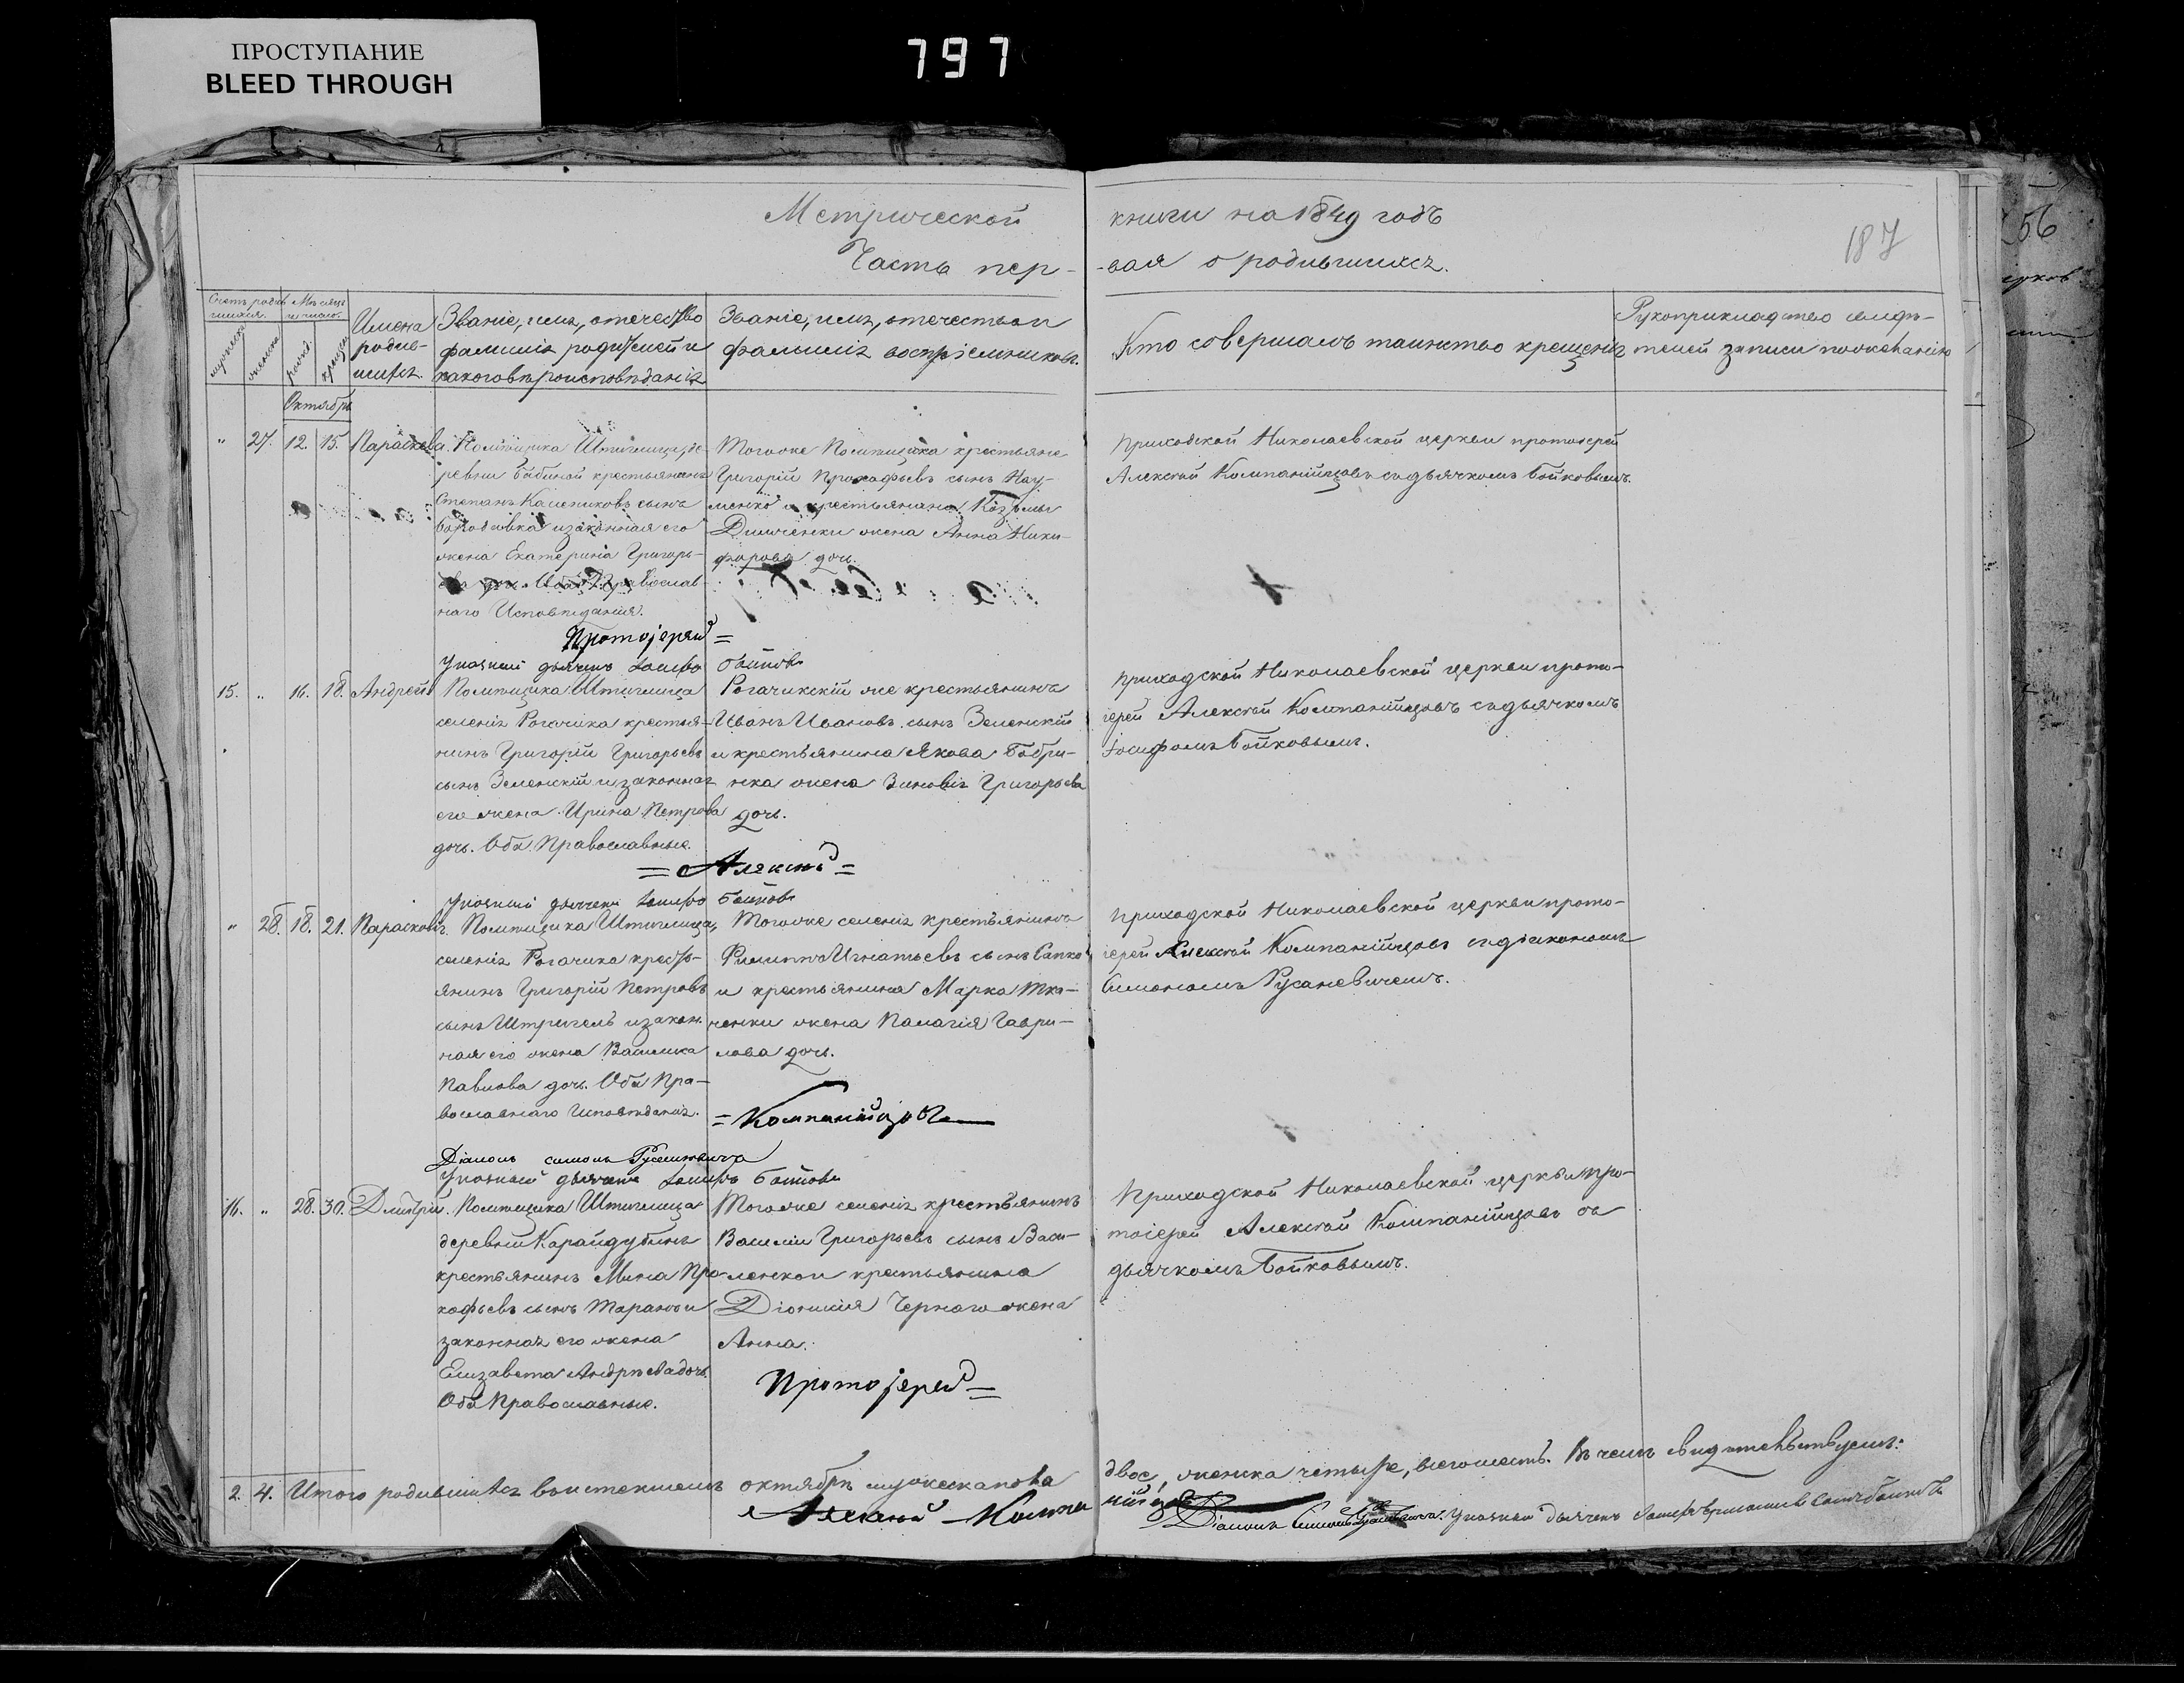 ПРОСТУПАНИЕ
BLEED THROUGH
797
Метрической книги на 1849 годъ
Часть пер- -вая о родившихся.
187
56
Счетъ родив
шихся.
Мѣсяцъ
и число.
мужеска
женска
рожд.
крещен.
Имена
родив-
шихся.
Званіе, имя, отечество
фамилія родителей и
какого вѣроисповѣданія
Званіе, имя, отечество и
фамилія воспріемниковъ.
Кто совершалъ таинство крещенія
Рукоприкладство свидѣ-
телей записи по желанію
Октябрь
" 27. 12. 15. Параскева
Помѣщика Штиглица, де-
ревни Бабиной крестьянинъ
Степанъ Калениковъ сынъ
и законная его
жена Екатерина Григорь-
ева дочь. Оба Православ-
наго Исповѣданія.
Тогоже Помѣщика крестьяне
Григорій Прокофьевъ сынъ Нау-
менко и крестьянина Козьмы
жена Анна Ники-
форова дочь.
Приходской Николаевской церкви протоіерей
Алексѣй Компанійцовъ съ дьячкомъ Бойковымъ.
Протоіерей =
Указный дьячекъ Іосифъ Бойковъ
15. " 16. 18. Андрей
Помѣщика Штиглица
селенія Рогачика крестья-
нинъ Григорій Григорьевъ
сынъ Зеленскій и законная
его жена Ирина Петрова
дочь. Оба Православные.
Рогачикскій же крестьянинъ
Иванъ Ивановъ сынъ Зеленскій
и крестьянина Якова Бобри-
нка жена Зиновія Григорьева
дочь.
Приходской Николаевской церкви прото-
іерей Алексѣй Компанійцовъ съ дьячкомъ
Іосифомъ Бойковымъ.
= Алексѣй =
Указный дьячекъ Іосифъ Бойковъ
" 28. 18. 21. Парасковія.
Помѣщика Штиглица,
селенія Рогачика кресть-
янинъ Григорій Петровъ
сынъ Штригель и закон-
ная его жена Василиса
Павлова дочь. Оба Пра-
вославнаго Исповѣданія.
Тогоже селенія крестьянинъ
Филиппъ Игнатьевъ сынъ Сапко
и крестьянина Марка Тка-
ченки жена Палагія Гаври-
лова дочь.
Приходской Николаевской церкви прото-
іерей Алексѣй Компанійцовъ съ діакономъ
Симономъ Русаневичемъ.
= Компанійцовъ
Діаконъ Симонъ Русаневичъ
Указный дьячекъ Іосифъ Бойковъ
16. " 28. 30. Дмитрій.
Помѣщика Штиглица
деревни Карайдубинъ
крестьянинъ Мина Про-
кофьевъ сынъ Таранъ и
законная его жена
Елизавета Андрѣева дочь.
Оба Православные.
Тогоже селенія крестьянинъ
Василій Григорьевъ сынъ Васи-
ленко и крестьянина
Діонисія Чернаго жена
Анна.
Приходской Николаевской церкви про-
тоіерей Алексѣй Компанійцовъ съ
дьячкомъ Бойковымъ.
Протоіерей =
2. 4. Итого родившихся въ истекшемъ октябрѣ мужеска пола двое, женска четыре, всего шесть. Въ чемъ свидѣтельствуемъ:
Алексѣй Компанійцовъ
Діаконъ Симонъ Русаневичъ. Указный дьячекъ Іосифъ Бойковъ